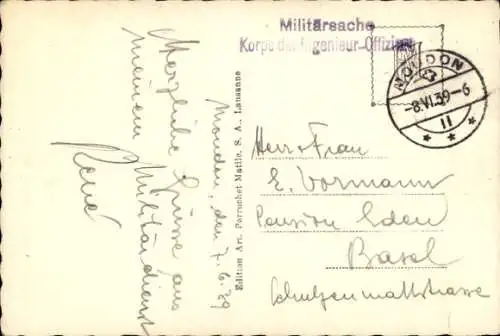 Militärsache
Korps der Ingenieur-Offiziere
MOUDON
-8.VI.39-6
II
Moudon, den 7.6.39
Herzliche Grüsse aus
meinem Militärdienst
René
Edition Art. Perrochet Matile, S. A., Lausanne
Herr + Frau
E. Vormann
Pension Eden
Basel
Schützenmattstrasse